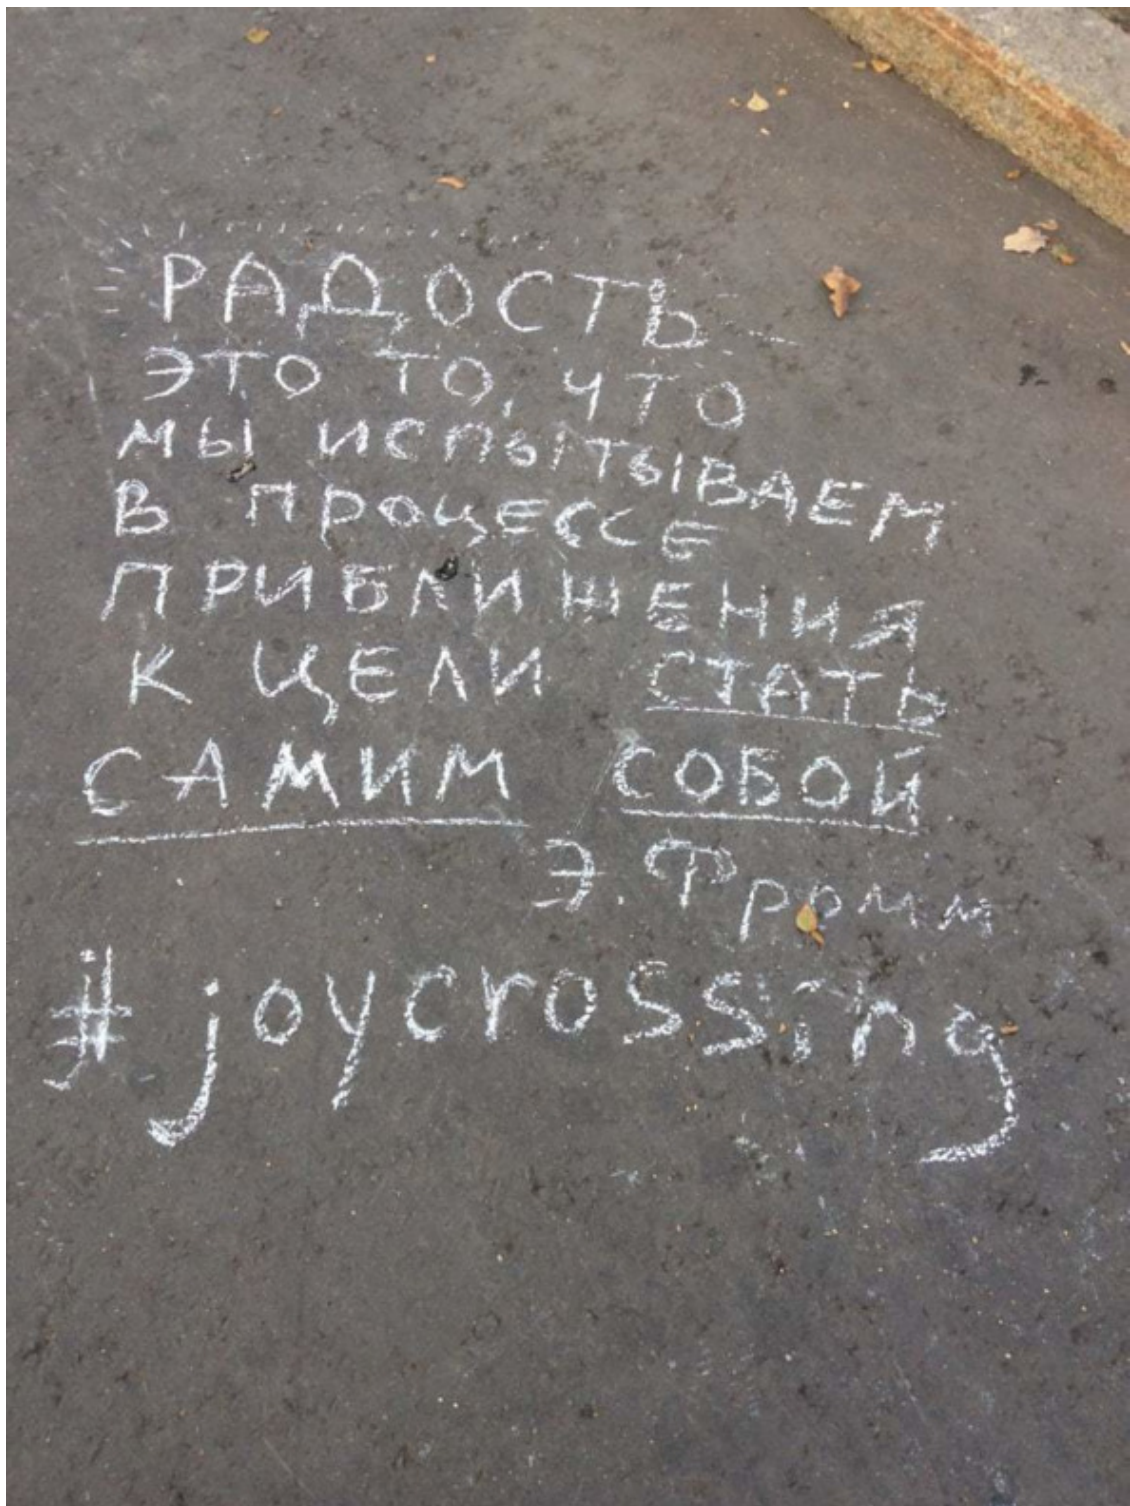 РАДОСТЬ
ЭТО ТО, ЧТО
МЫ ИСПЫТЫВАЕМ
В ПРОЦЕССЕ
ПРИБЛИЖЕНИЯ
К ЦЕЛИ СТАТЬ
САМИМ СОБОЙ
Э. Фромм
#joycrossing